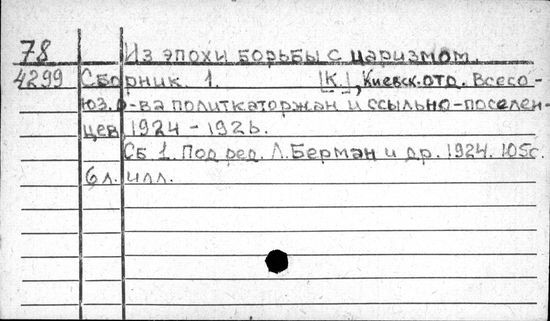 78 Из эпохи борьбы с царизмом.
4299 Сборник. 1. [К.], Киевск. отд. Всесо-
юз. о-ва политкаторжан и ссыльно-поселен-
цев, 1924-1926.
Сб 1. Под ред. Л. Берман и др. 1924. 105с.
6 л. илл.